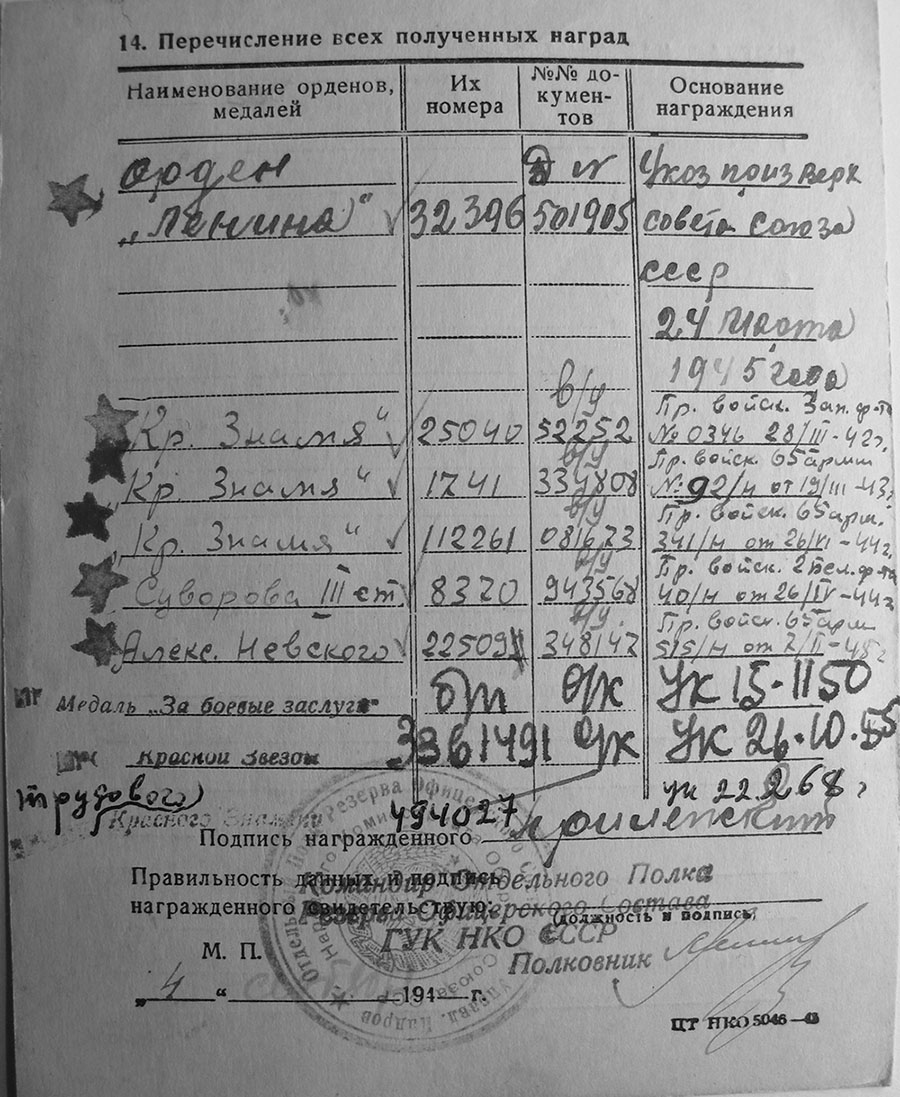 14. Перечисление всех полученных наград
Наименование орденов, медалей
Их номера
№№ документов
Основание награждения
Орден
Указ през верх
„Ленина" 32396 501905 совета Союза
СССР
24 Марта
1945 года
в/у Пр. войск. Зап. ф-та
Кр. Знамя" 25040 52252 № 0346 28/III-42г.
в/у Пр. войск. 65 армии
Кр. Знамя" 1741 334808 № 92/н от 19/III-43г.
в/у Пр. войск. 65 арм.
„Кр. Знамя" 112261 081673 341/н от 26/VI-44г.
в/у Пр. войск. 2 Бел. ф-та
Суворова III ст. 8370 943568 40/н от 26/IV-44г
в/у. Пр. войск. 65 арм
Алекс. Невского 22509 348147 515/н от 7/II-45г
Медаль „За боевые заслуги" б/н о/к УК 15.1150
Красной Звезды 3361491 о/к УК 26.10.55
Трудового ук 22 2 68 г
Красного Знамени 494027
Подпись награжденного
Правильность данных и подпись
награжденного свидетельствую:
Командир Отдельного Полка
Резерва Офицерского Состава
(должность и подпись)
ГУК НКО СССР
М. П. Полковник
„ 4 " 194 г.
ЦТ НКО 5046—43